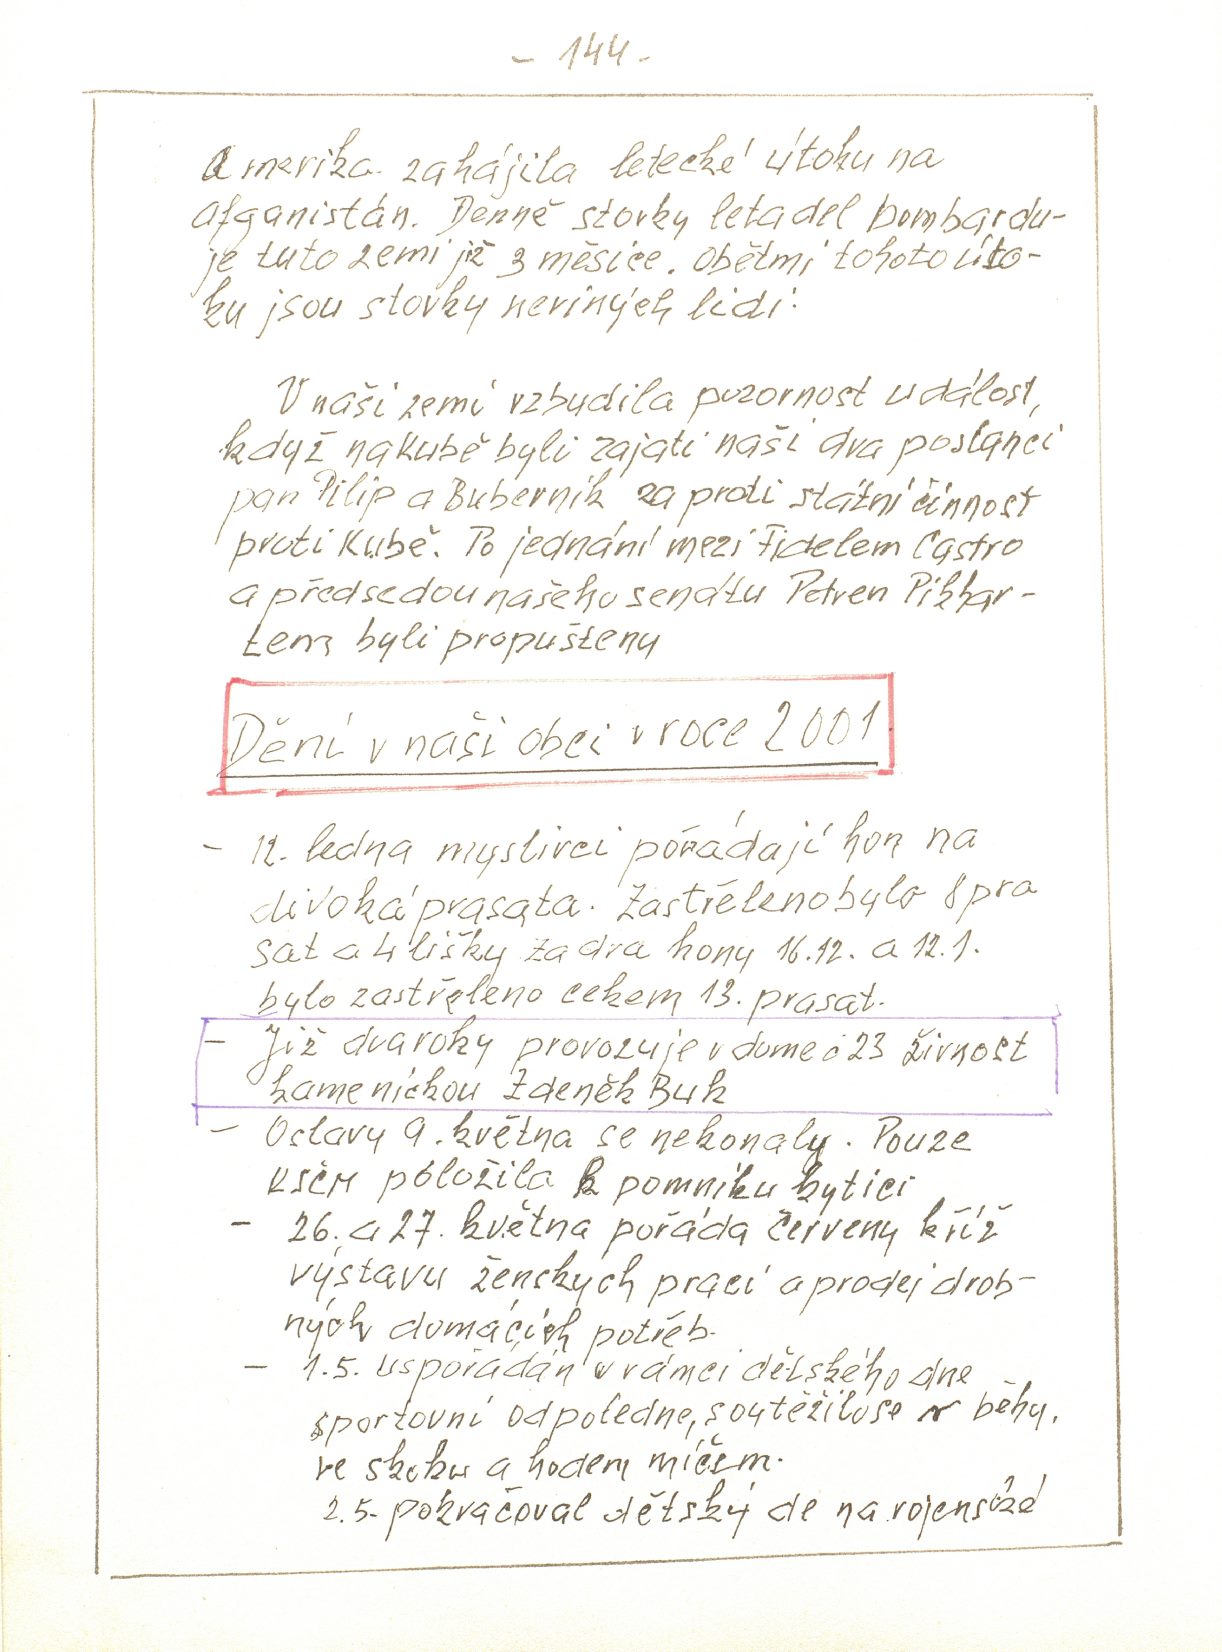 - 144 -
Amerika zahájila letecké útoku na
Afganistán. Denně stovky letadel bombardu-
je tuto zemi již 3 měsíce. Obětmi tohoto úto-
ku jsou stovky neviných lidí.
V naší zemi vzbudila pozornost událost,
když na Kubě byli zajati naši dva poslanci
pan Pilip a Buberník za proti státní činnost
proti Kubě. Po jednání mezi Fidelem Castro
a předsedou našeho senátu Petren Pithar-
tem byli propušteny
Dění v naší obci v roce 2001
- 12. ledna myslivci pořádají hon na
divoká prasata. Zastřeleno bylo 8 pra
sat a 4 lišky za dva hony 16.12. a 12.1.
bylo zastřeleno cekem 13. prasat.
- Již dva roky provozuje v dome č 23 živnost
kamenickou Zdeněk Buk
- Oslavy 9. května se nekonaly. Pouze
KSČM položila k pomníku kytici
- 26. a 27. května pořáda Červeny kříž
výstavu ženských prací a prodej drob-
ných domácích potřeb.
- 1.5. uspořádán v rámci dětského dne
sportovní odpoledne, soutěžilo se v běhu,
ve skoku a hodem míčem.
2.5. pokračoval dětský de na vojenské